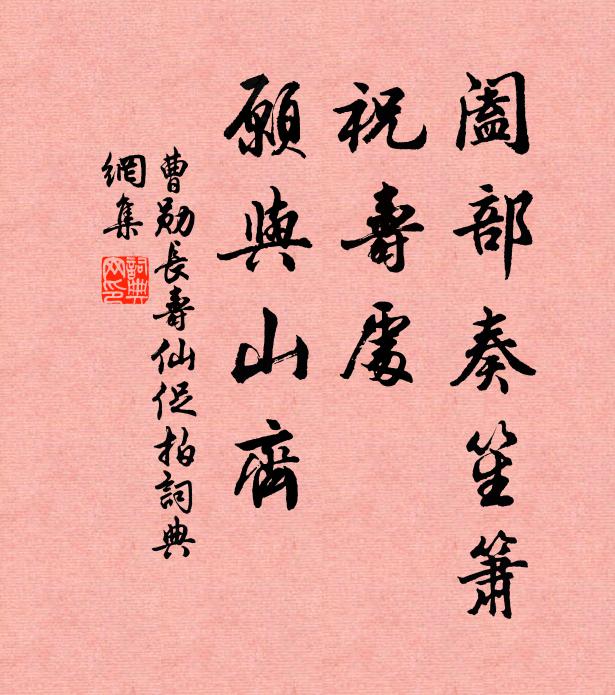 闔部奏笙簫
祝壽處
願與山齊
曹勛長壽仙促拍詞典
網集
詞典
网印